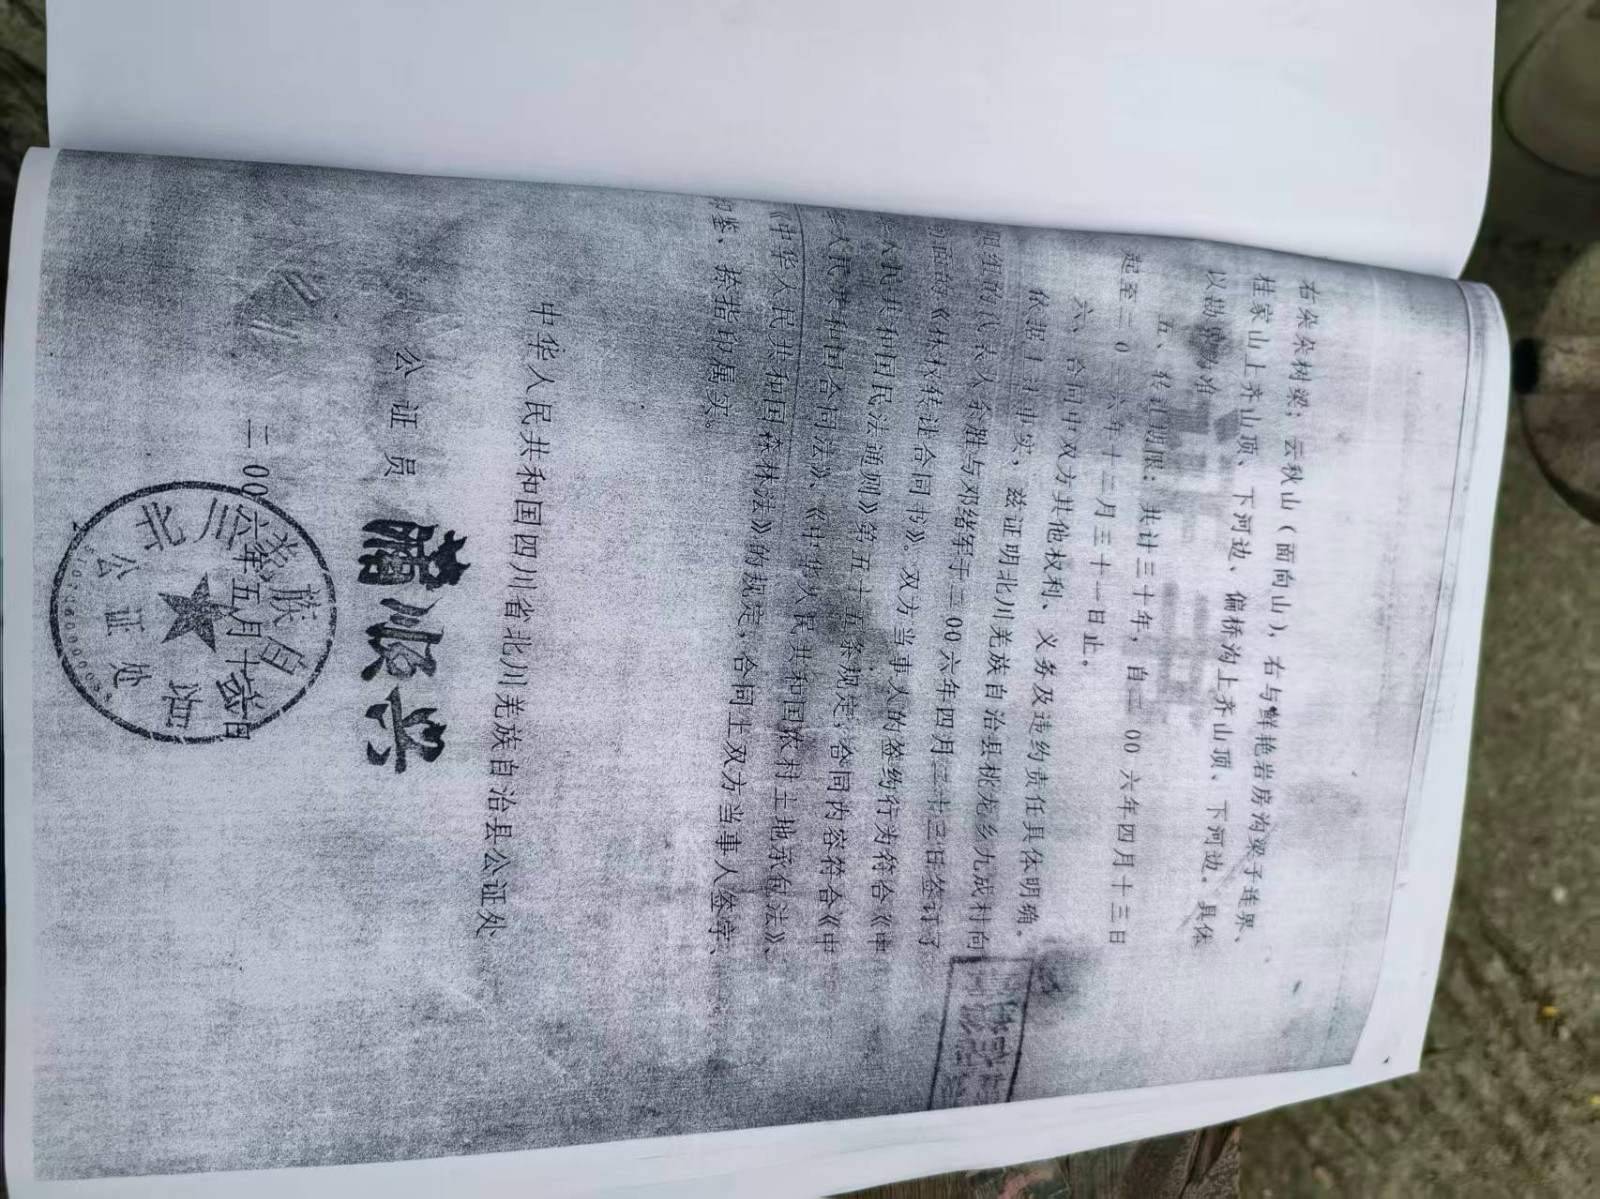 右朵朵树梁；云秋山（面向山），右与鲜艳岩房沟梁子连界、
桂家山上齐山顶、下河边、偏桥沟上齐山顶、下河边。具体
以勘 为准
五、转让期限：共计三十年，自二00六年四月十三日
起至二0三六年十二月三十一日止。
六、合同中双方其他权利、义务及违约责任具体明确。
依据上述事实，兹证明北川羌族自治县桃龙乡九成村
组的代表人余胜与邓绪军于二00六年四月二十三日签订了
《林权转让合同书》。双方当事人的签约行为符合《中
人民共和国民法通则》第五十五条规定，合同内容符合《中
华人民共和国合同法》、《中华人民共和国农村土地承包法》、
《中华人民共和国森林法》的规定，合同上双方当事人签字、
印鉴、捺指印属实。
中华人民共和国四川省北川羌族自治县公证处
公证员 蒲顺兴
二00六年五月十 日
北川羌族自治县
公证处